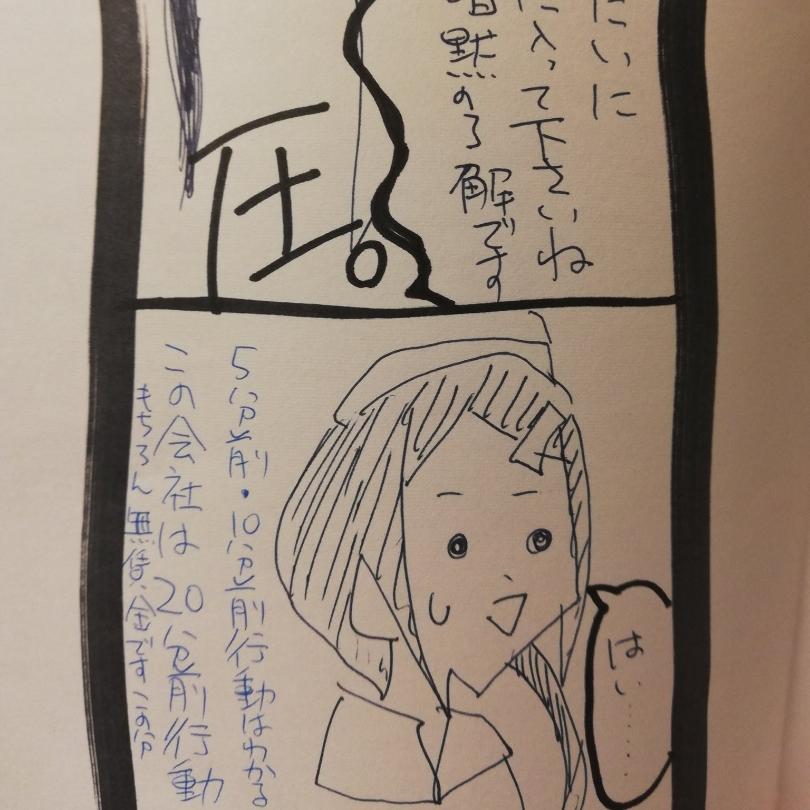 たいに
に入って下さいね
暗黙の了解です
圧。
はい……
5分前・10分前行動はわかる
この会社は20分前行動
もちろん無賃金ですこの分